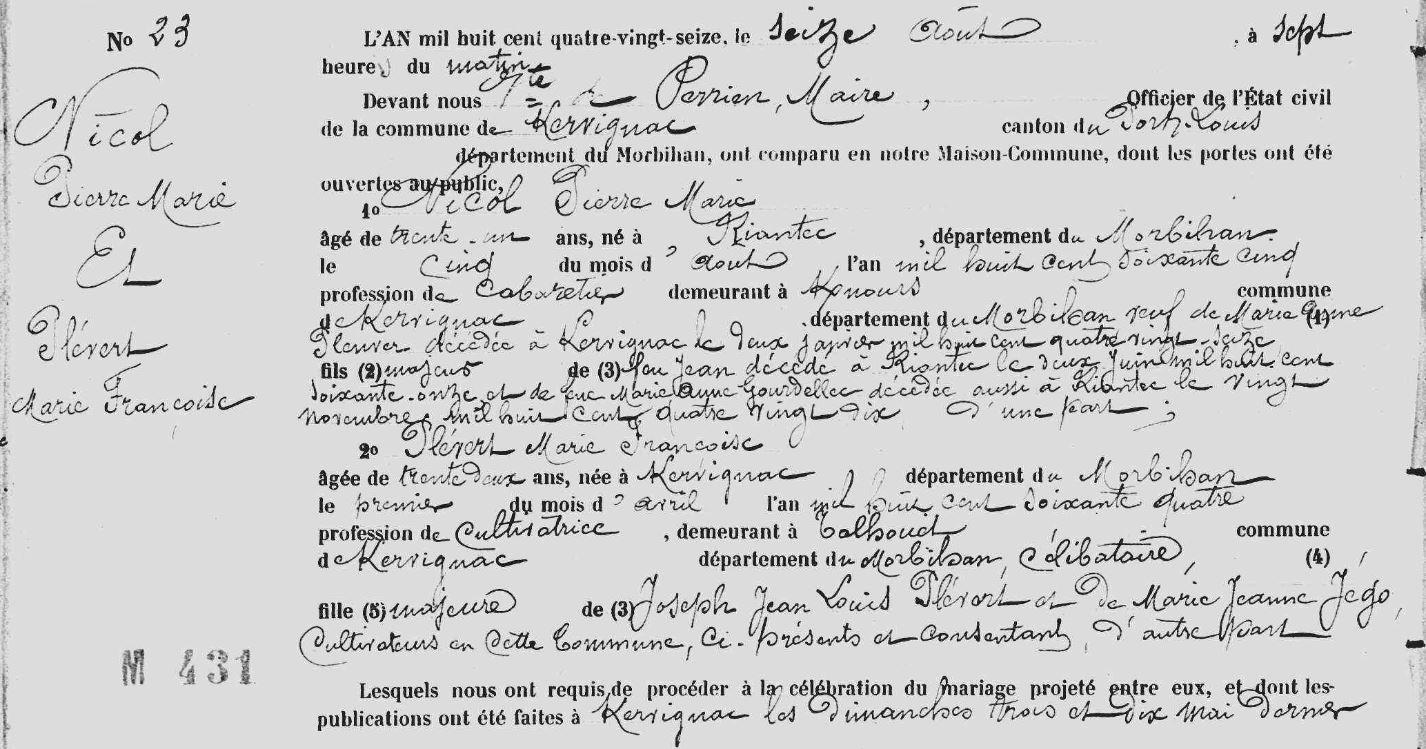 No 23
Nicol
Pierre Marie
Et
Plévert
Marie Françoise
M 431
L'AN mil huit cent quatre-vingt-seize, le seize Août, à sept
heures du matin
Devant nous de Perrien, Maire, Officier de l'État civil
de la commune de Kervignac canton du Port-Louis
département du Morbihan, ont comparu en notre Maison-Commune, dont les portes ont été
ouvertes au public,
1o Nicol Pierre Marie
âgé de trente-un ans, né à Riantec, département du Morbihan.
le cinq du mois d'août l'an mil huit cent soixante cinq
profession de Cabaretier demeurant à commune
de Kervignac département du Morbihan veuf de Marie Anne (1)
décédée à Kervignac le deux janvier mil huit cent quatre vingt-seize
fils (2) majeur de (3) feu Jean décédé à Riantec le deux Juin mil huit cent
soixante-onze et de feue Marie Anne Gourdellec décédée aussi à Riantec le vingt
novembre mil huit cent quatre vingt dix, d'une part;
2o Plévert Marie Françoise
âgée de trente deux ans, née à Kervignac département du Morbihan
le premier du mois d'avril l'an mil huit cent soixante quatre
profession de Cultivatrice, demeurant à commune
de Kervignac département du Morbihan, Célibataire, (4)
fille (5) majeure de (3) Joseph Jean Louis Plévert et de Marie Jeanne Jégo,
Cultivateurs en cette Commune, ci-présents et consentants, d'autre part
Lesquels nous ont requis de procéder à la célébration du mariage projeté entre eux, et dont les
publications ont été faites à Kervignac les Dimanches trois et dix mai dernier